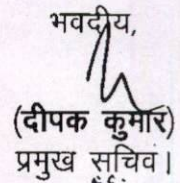 भवदीय,
(दीपक कुमार)
प्रमुख सचिव।